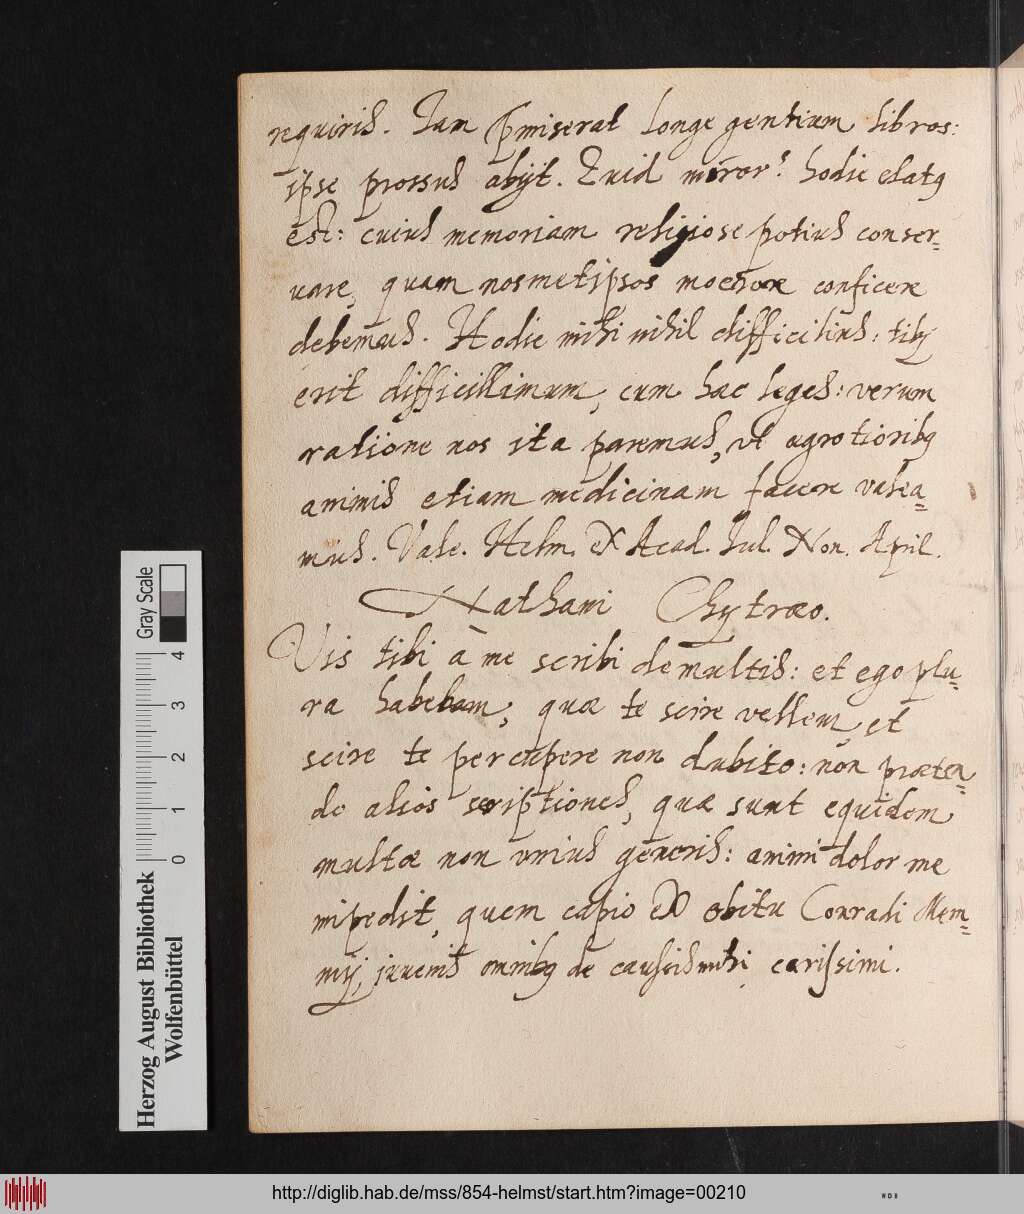 requiris. Iam p̃miserat longe gentium libros:
ipse prorsus abijt. Quid miror? hodie elatq
est: cuius memoriam religiose potius conser=
uare, quam nosmetipsos moerore conficere
debemus. Hodie mihi nihil difficilius: tibj
erit difficillimum, cum hac leges: verum
ratione nos ita paremus, vt aegrotioribq
animis etiam medicinam facere valea=
mus. Vale. Helm. ex Acad. Iul. Non. April.
Nathani Chytraeo.
Vis tibi a me scribi de multis: et ego plu=
ra habebam, quae te scire vellem, et
scire te percupere non dubito: non praeten=
do alios scriptiones, quae sunt equidem
multae non unius generis: animi dolor me
impedit, quem capio ex obitu Conradi Mem=
mij, juuenis omnibq de caussis mihi carissimi.
Herzog August Bibliothek
Wolfenbüttel
Gray Scale
0 1 2 3 4
http://diglib.hab.de/mss/854-helmst/start.htm?image=00210
WDB